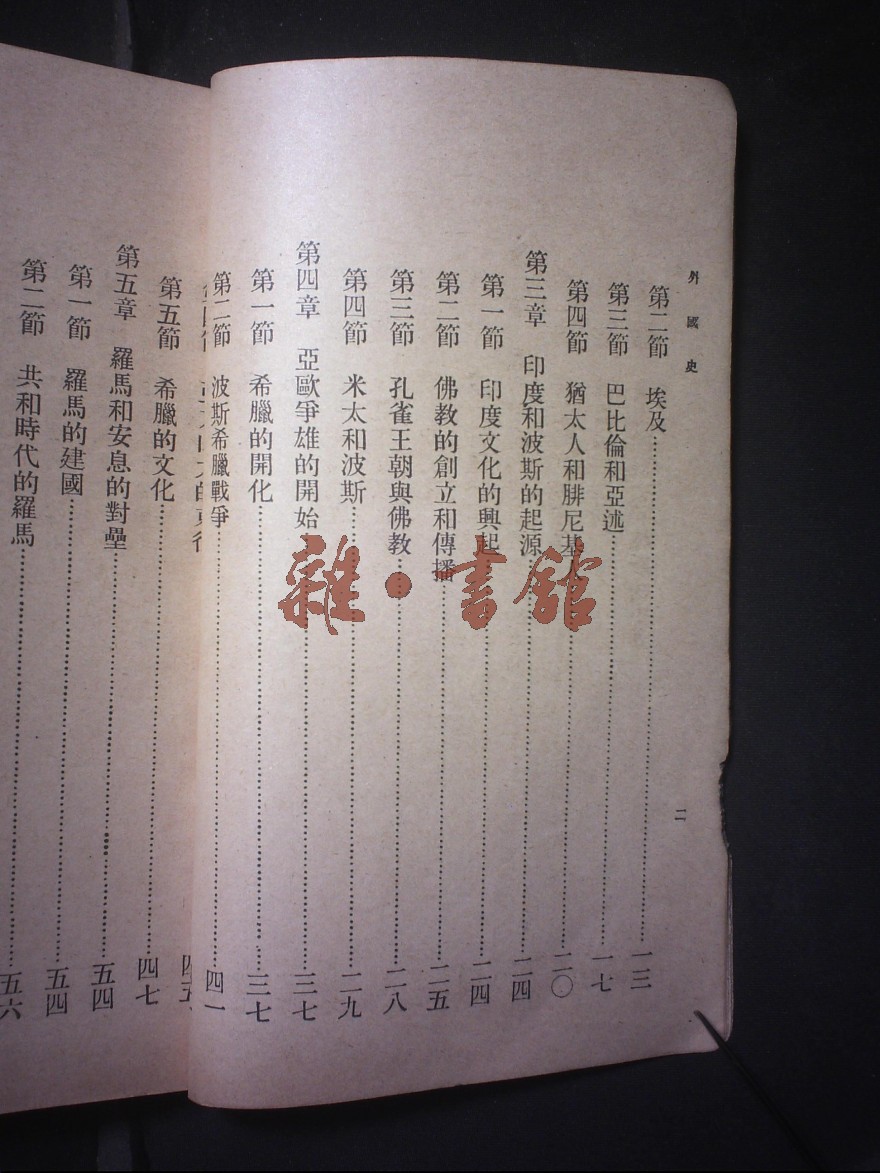 外國史
第二節 埃及……一三
第三節 巴比倫和亞述……一七
第四節 猶太人和腓尼基人……二〇
第三章 印度和波斯的起源……二四
第一節 印度文化的興起……二四
第二節 佛教的創立和傳播……二五
第三節 孔雀王朝與佛教……二八
第四節 米太和波斯……二九
第四章 亞歐爭雄的開始……三七
第一節 希臘的開化……三七
第二節 波斯希臘戰爭……四一
二
四五
第五節 希臘的文化……四七
第五章 羅馬和安息的對壘……五四
第一節 羅馬的建國……五四
第二節 共和時代的羅馬……五六
雜·書館